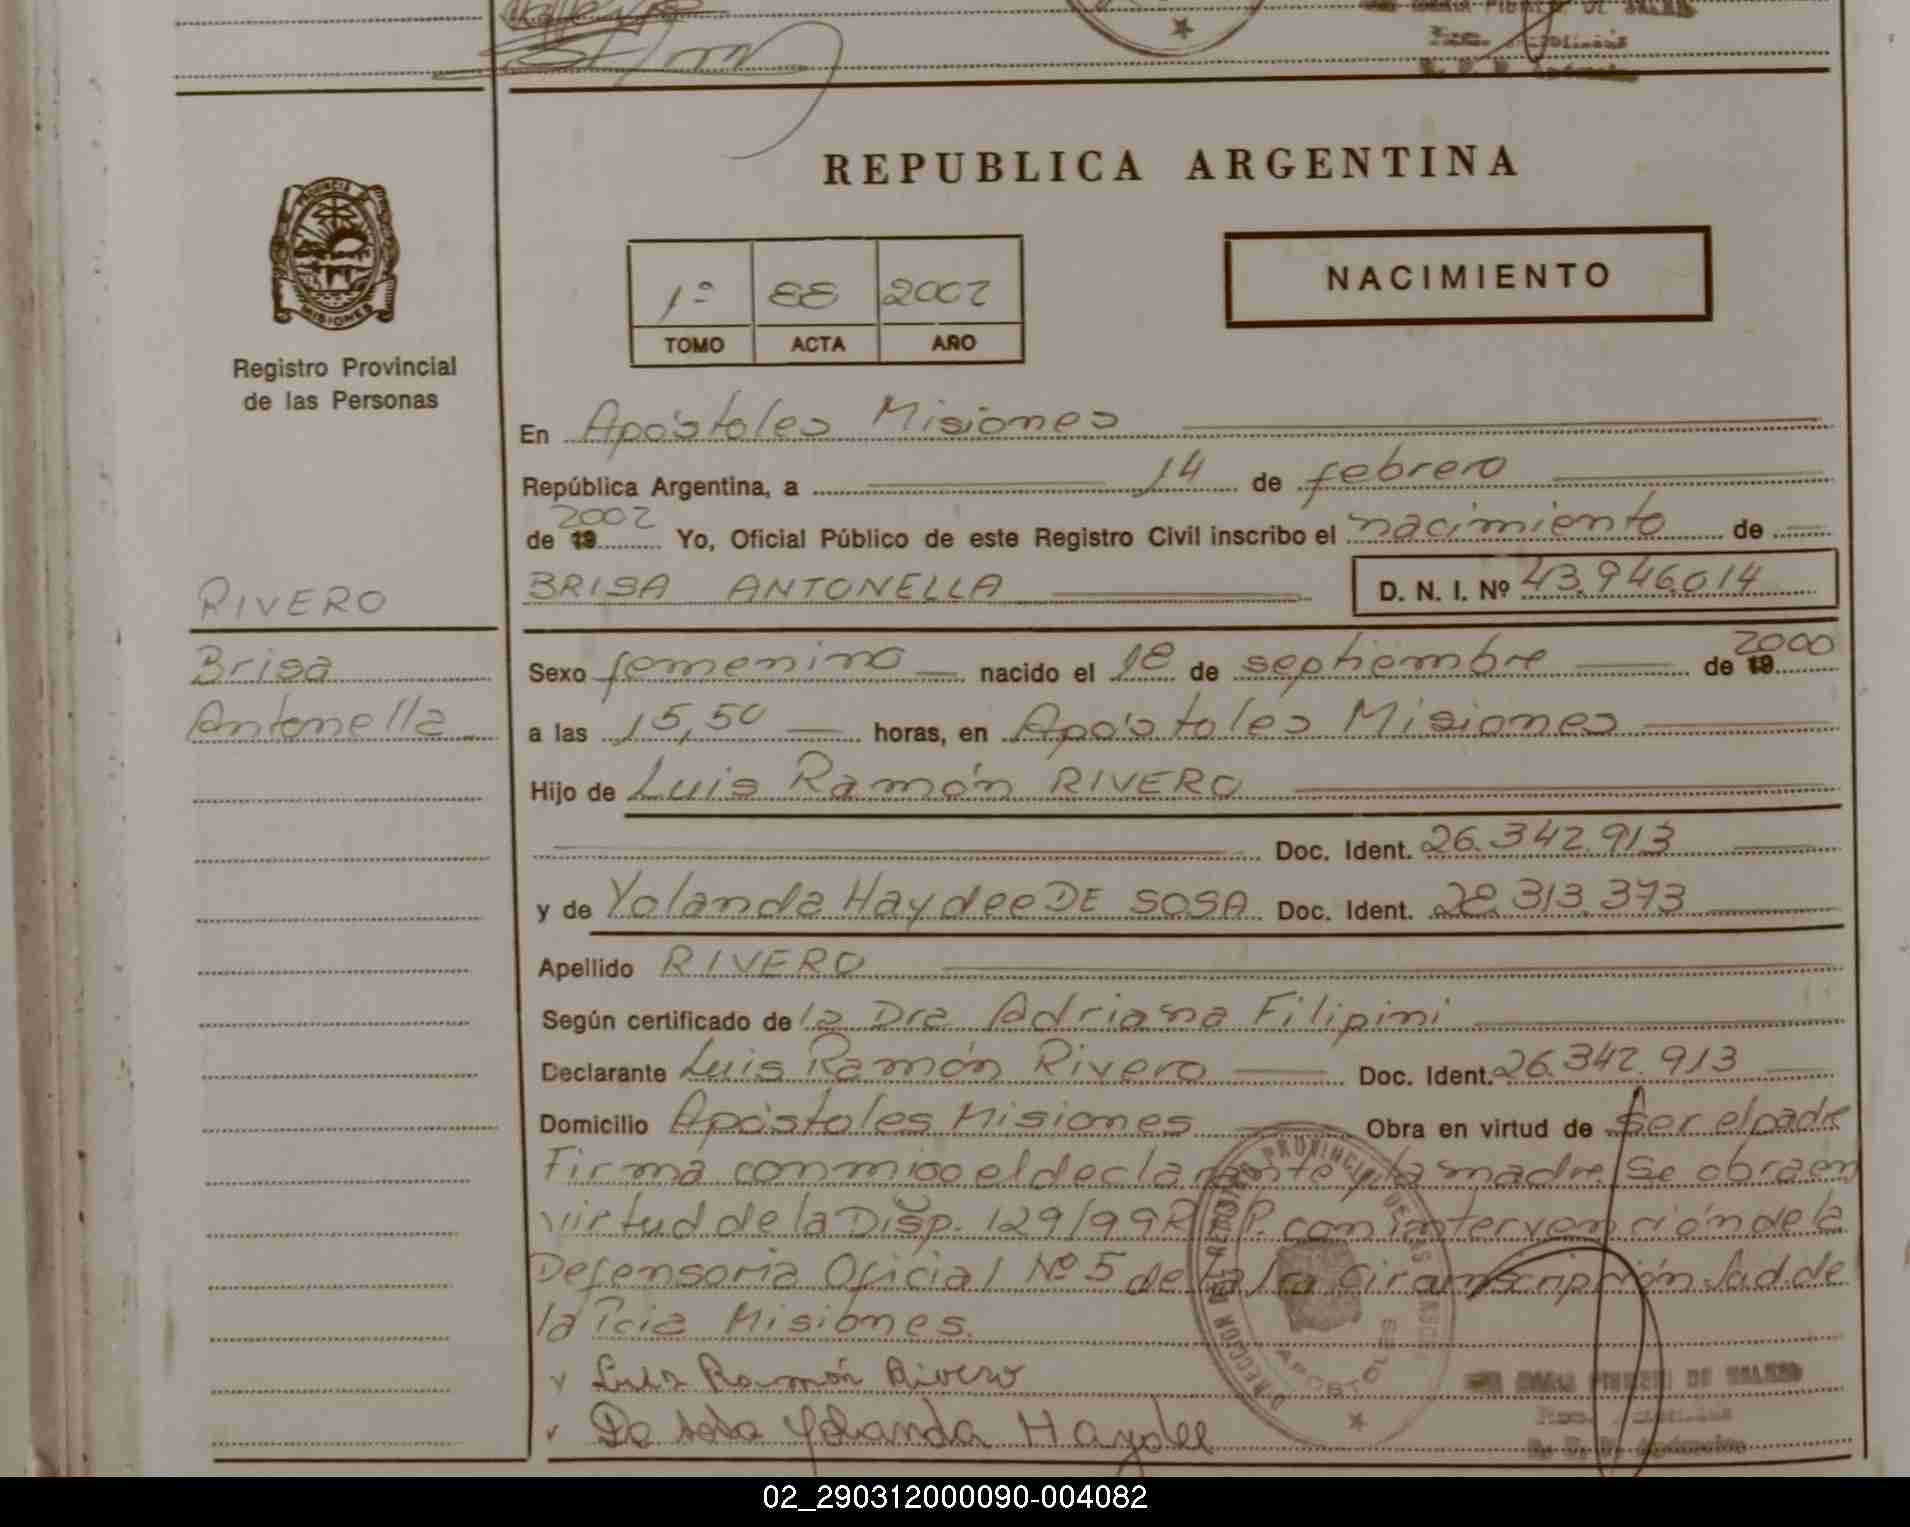 REPUBLICA ARGENTINA
PROVINCIA DE
MISIONES
Registro Provincial
de las Personas
1º 88 2002
TOMO ACTA AÑO
NACIMIENTO
En Apóstoles Misiones
República Argentina, a 14 de febrero
2002
de 19 Yo, Oficial Público de este Registro Civil inscribo el nacimiento de
BRISA ANTONELLA D. N. I. Nº 43.946.014
RIVERO
Brisa
Antonella
2000
Sexo femenino nacido el 18 de septiembre de 19
a las 15,50 horas, en Apóstoles Misiones
Hijo de Luis Ramón RIVERO
Doc. Ident. 26.342.913
y de Yolanda Haydee DE SOSA Doc. Ident. 28.313.373
Apellido RIVERO
Según certificado de la Dra Adriana Filipini
Declarante Luis Ramón Rivero Doc. Ident. 26.342.913
Domicilio Apóstoles Misiones Obra en virtud de ser el padre
Firma conmigo el declarante y la madre. Se obra en
virtud de la Disp. 129/99 R.P.P. con intervención de la
Defensoria Oficial Nº 5 de la 1ra Circunscripción Jud. de
la Pcia Misiones.
Luis Ramón Rivero
De sosa Yolanda Haydee
APOSTOLES
02_290312000090-004082